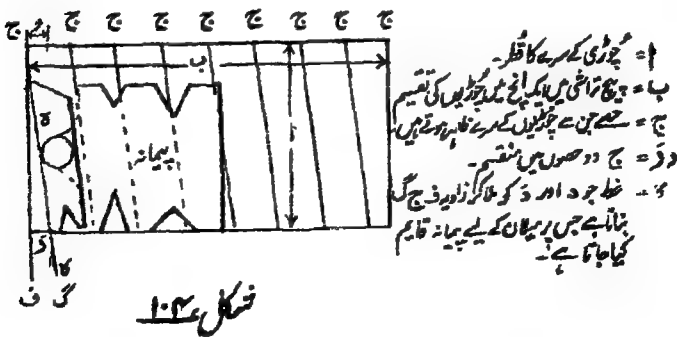 ج د ج ج ج ج ج ج ج ج
ب
ا
ہ
پیمانہ
دَ ہ
ف گ
شکل ۱۰۴
ا = چوڑی کے سرے کا قطر۔
ب = پیچ تراشی میں ایک انچ میں چوڑیوں کی تقسیم
ج = حصے جن سے چوڑیوں کے سرے ظاہر ہوتے ہیں
د دَ = ج دو حصوں میں منقسم۔
ہ = خط جو د اور دَ کو ملا کر زاویہ ف ج گ
بناتا ہے جس پر میلان کے لیے پیمانہ قایم
کیا جاتا ہے۔